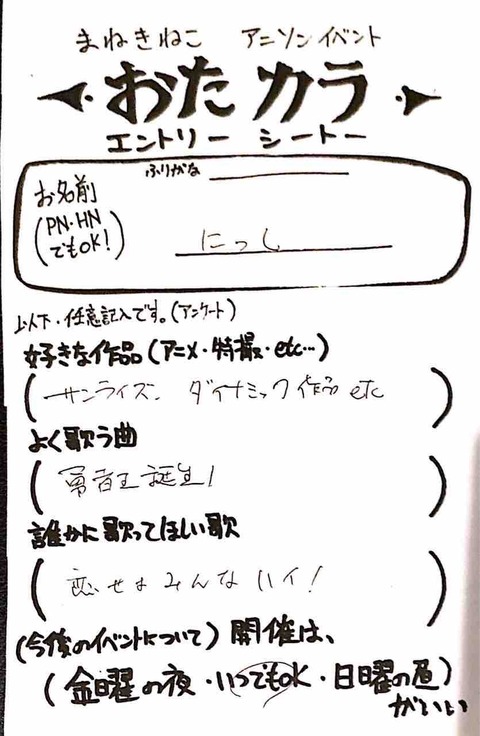 まねきねこ アニソンイベント
おたカラ
エントリー シートー
ふりがな
お名前
(PN・HN
でもOK!)
にっし
以下・任意記入です。(アンケート)
好きな作品(アニメ・特撮・etc…)
(サンライズ、ダイナミック作品 etc)
よく歌う曲
(勇者王誕生!)
誰かに歌ってほしい歌
(恋せよみんなハイ!)
(今後のイベントについて)開催は、
(金曜の夜・いつでもOK・日曜の昼)
がいい